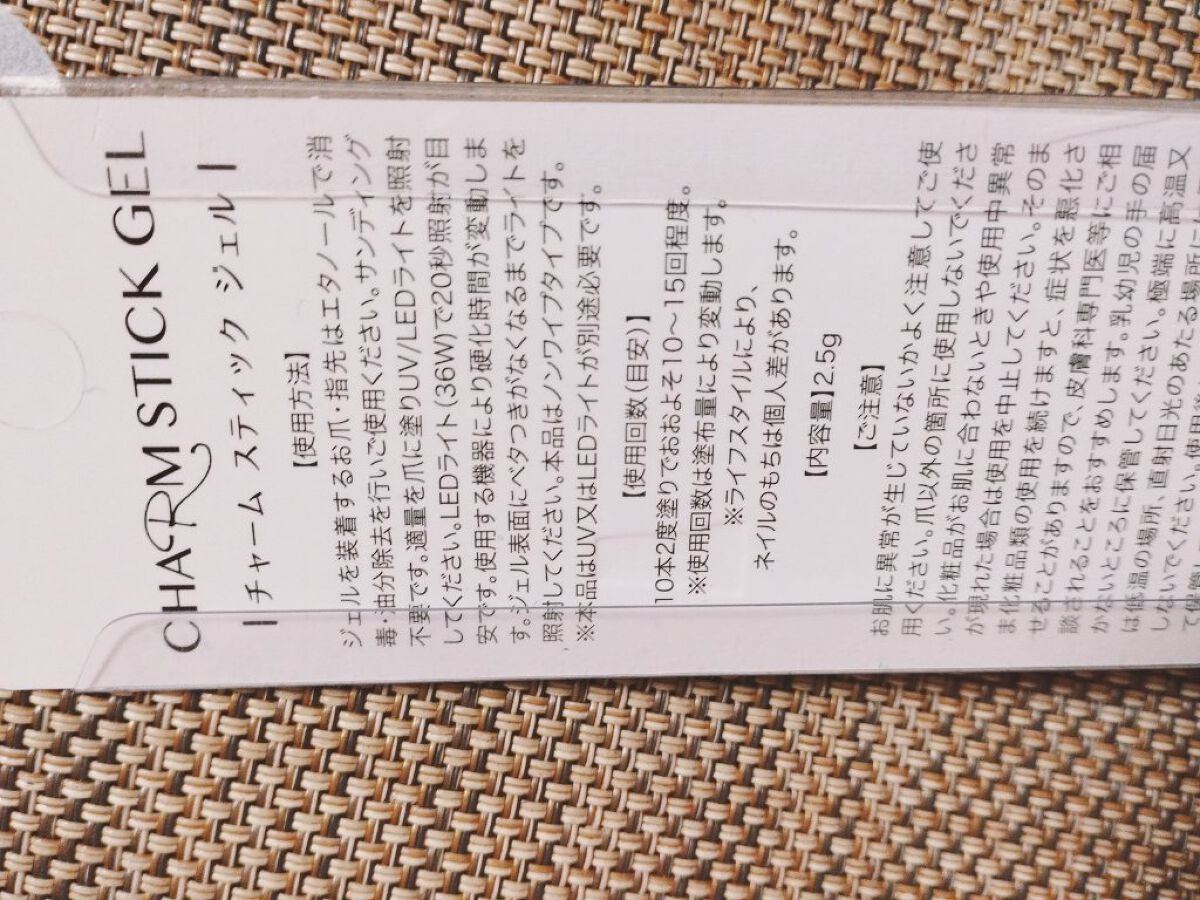 CHARM STICK GEL
チャーム スティック ジェル
【使用方法】
ジェルを装着するお爪・指先はエタノールで消
毒・油分除去を行いご使用ください。サンディング
不要です。適量を爪に塗りUV/LEDライトを照射
してください。LEDライト(36W)で20秒照射が目
安です。使用する機器により硬化時間が変動しま
す。ジェル表面にベタつきがなくなるまでライトを
照射してください。本品はノンワイプタイプです。
※本品はUV又はLEDライトが別途必要です。
【使用回数(目安)】
10本2度塗りでおおよそ10〜15回程度。
※使用回数は塗布量により変動します。
※ライフスタイルにより、
ネイルのもちは個人差があります。
【内容量】2.5g
【ご注意】
お肌に異常が生じていないかよく注意してご使
用ください。爪以外の箇所に使用しないでくださ
い。化粧品がお肌に合わないときや使用中異常
が現れた場合は使用を中止してください。そのま
ま化粧品類の使用を続けますと、症状を悪化さ
せることがありますので、皮膚科専門医等にご相
談されることをおすすめします。乳幼児の手の届
かないところに保管してください。極端に高温又
は低温の場所、直射日光のあたる場所に
しないでください。使用